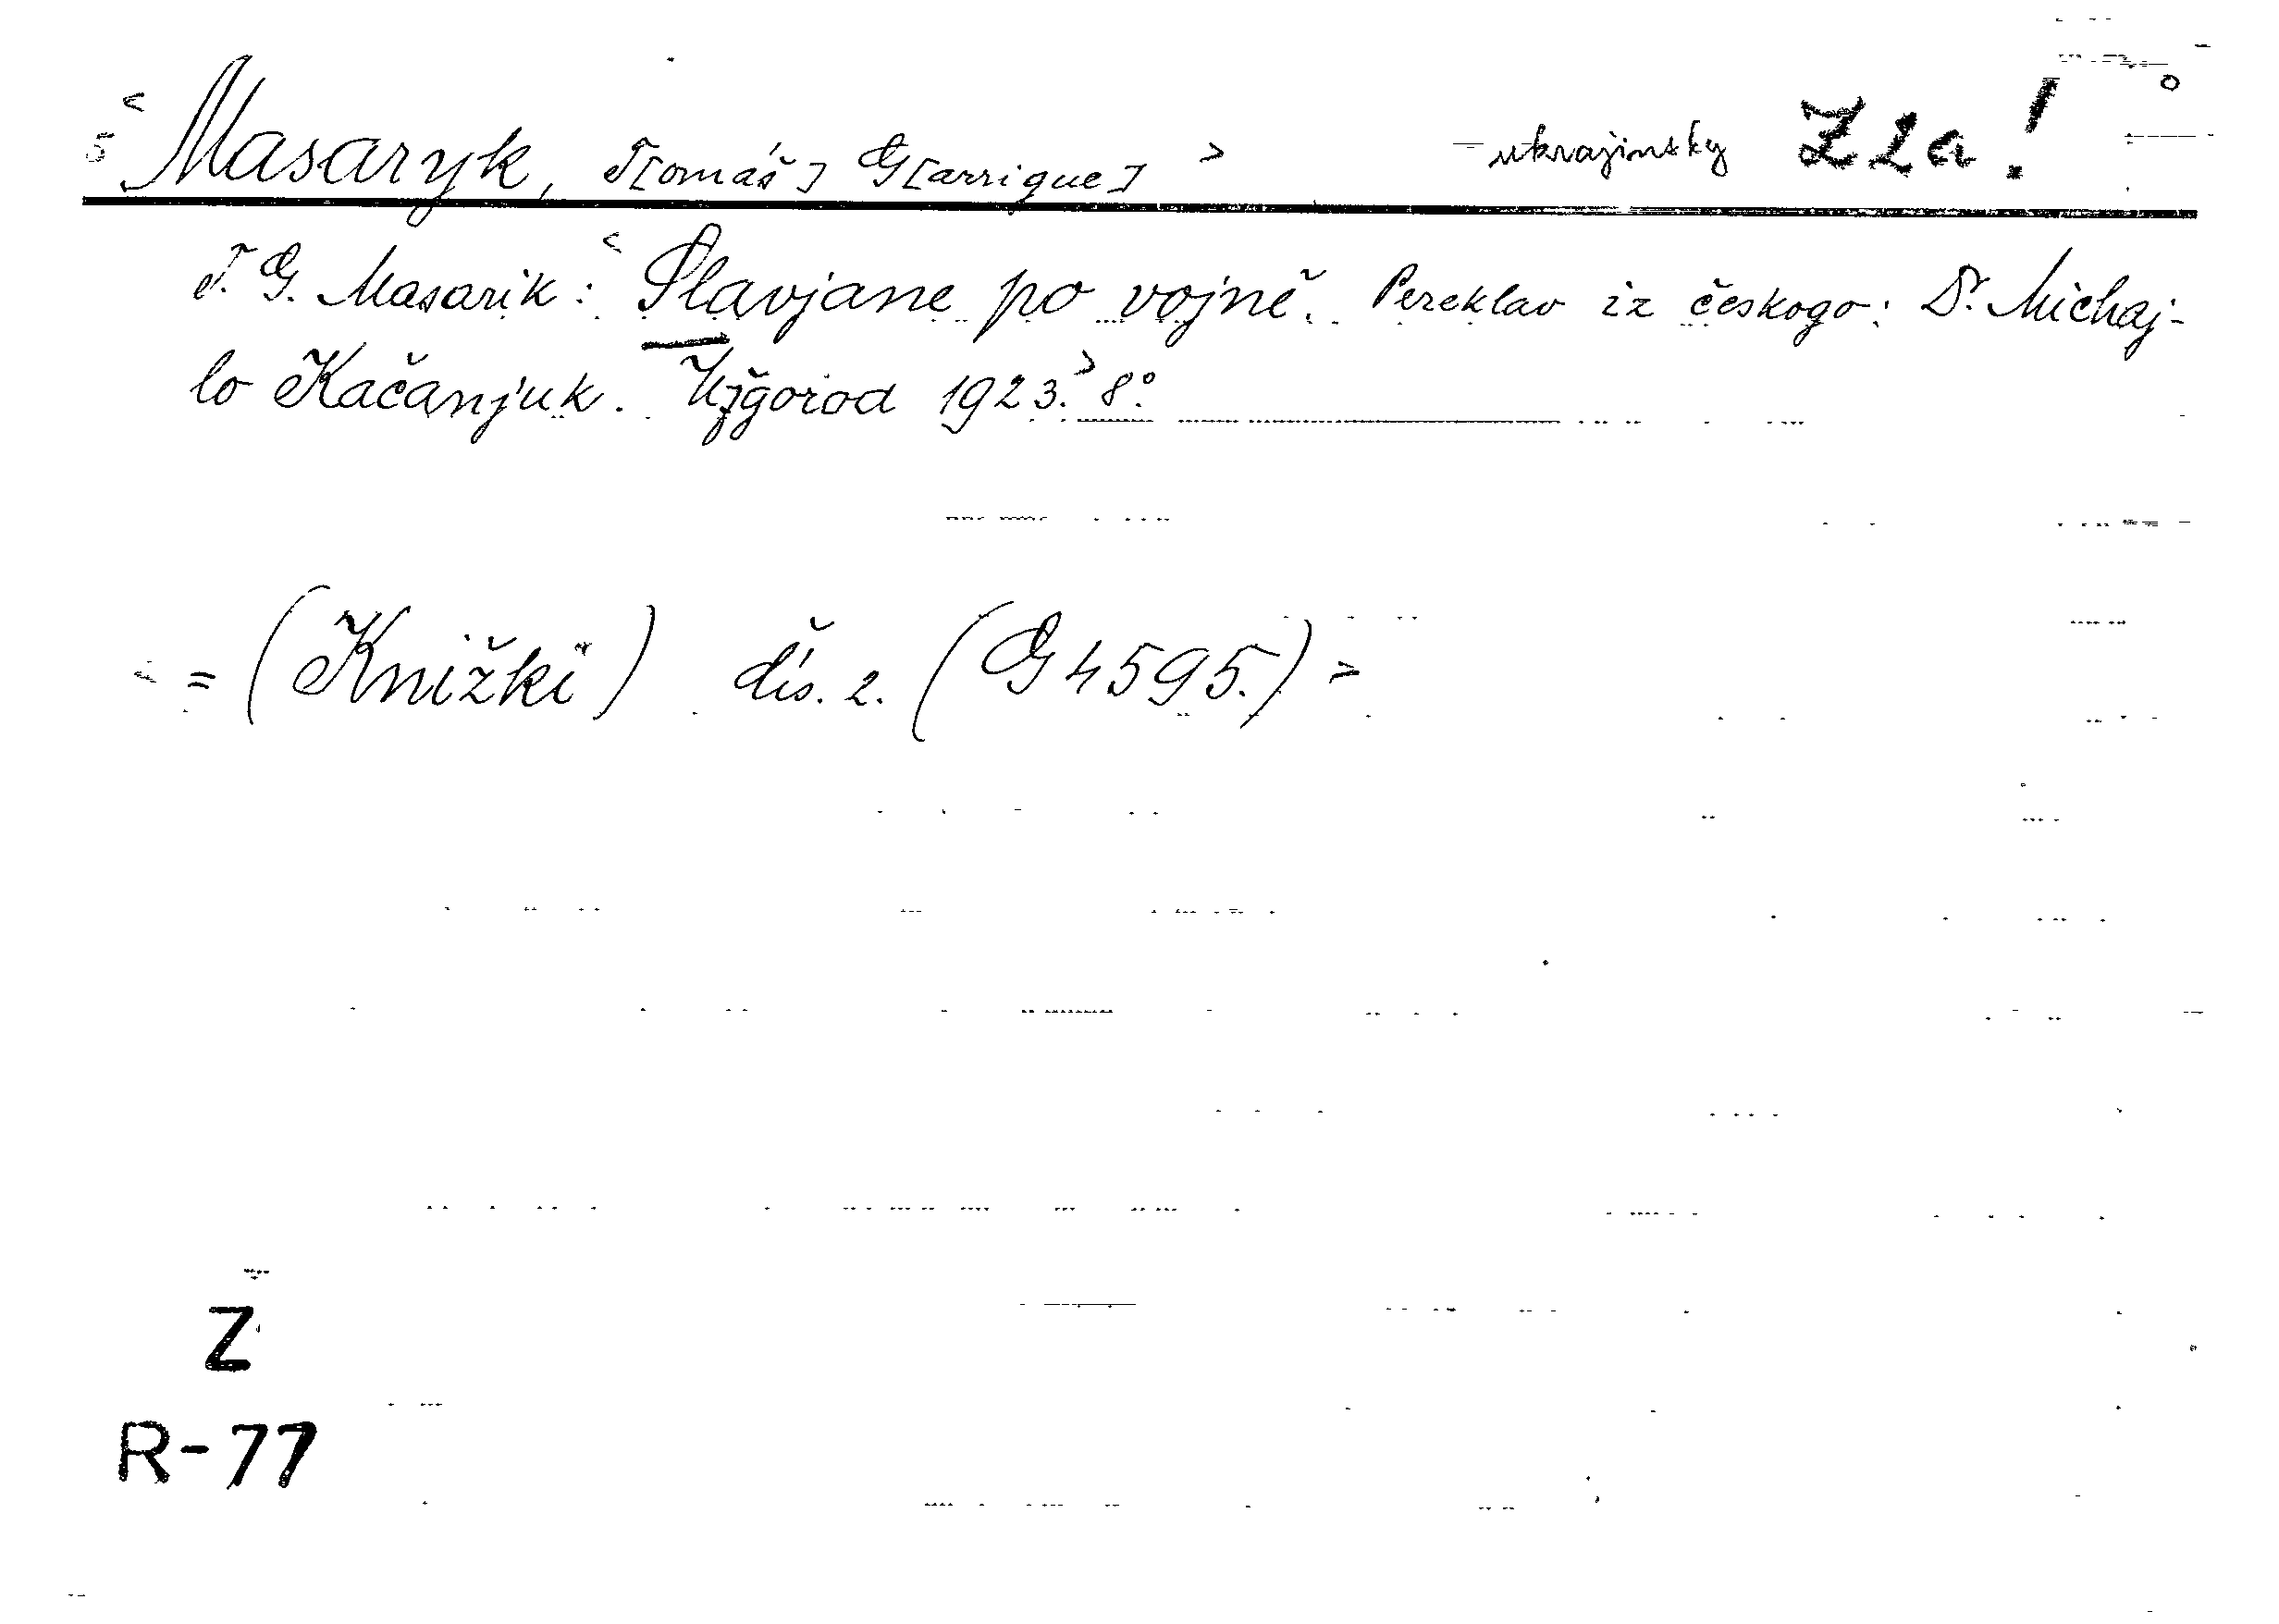 < Masaryk, T[omáš] G[arrigue] > -ukrajinsky Z2a!
T. G. Masarik: < Slavjane po vojně. Pereklav iz českogo: Dr. Michaj-
lo Kačanjuk. Užgorod 1923. > 8°.
< = (Knižki) čís. 2. (G 4595.) >
Z
R-77